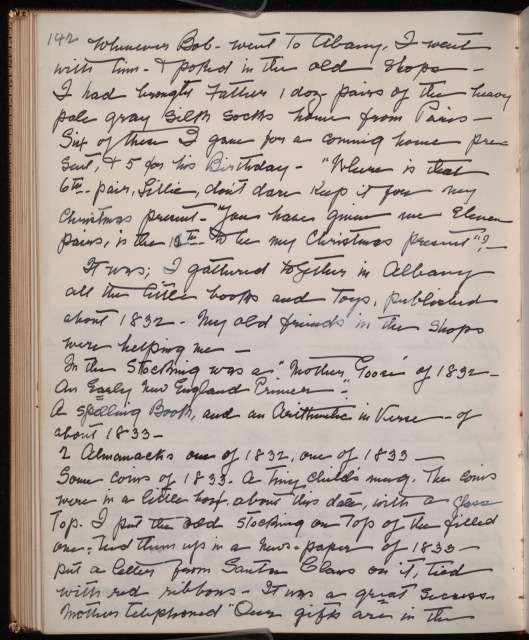 142 Whenever Bob - went to Albany, I went
with him - & poked in the old shops -
I had brought Father 1 doz pairs of the heavy
pale gray silk socks home from Paris -
Six of them I gave for a coming home pre-
sent, & 5 for his Birthday - "Where is that
6th - pair, Lillie, don't dare keep it for my
Christmas present - "You have given me Eleven
pairs, is the 12th to be my Christmas present"? -
It was; I gathered together in Albany
all the little books and Toys, published
about 1832 - My old friends in the shops
were helping me -
In the Stocking was a "Mother Goose" of 1832 -
An Early New England Primer".
A spelling Book, and an Arithmetic in Verse - of
about 1833 -
2 Almanacks one of 1832, one of 1833 -
Some coins of 1833 - A tiny child's mug. The coins
were in a little box, about this date, with a glass
Top. I put the odd stocking on Top of the filled
one; tied them up in a news-paper of 1833 -
put a letter from Santa Claus on it, tied
with red ribbons - It was a great success -
Mother telephoned "Our gifts are in the